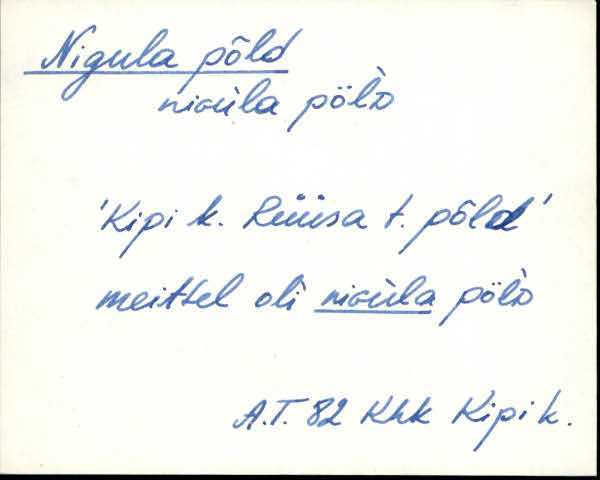 Nigula põld
niɢùla pöl̀ᴅ
'Kipi k. Rüüsa t. põld'
meittel oli niɢùla pöl̀ᴅ
A.T. 82 Khk Kipi k.